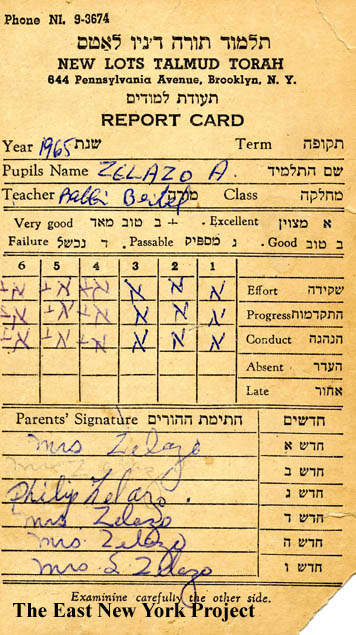 Phone NI. 9-3674
תלמוד תורה ד׳ניו לאטס
NEW LOTS TALMUD TORAH
644 Pennsylvania Avenue, Brooklyn, N. Y.
תעודת למודים
REPORT CARD
Year 1965 שנת Term תקופה
Pupils Name ZELAZO A. שם התלמיד
Teacher Rabbi מורה Class מחלקה
Very good ב טוב מאד + Excellent. א מצוין
Failure ד נכשל. Passable ג מספיק. Good. ב טוב
6 5 4 3 2 1
א+ א+ א+ א א א Effort שקידה
א+ א+ א+ א א Progress התקדמות
א+ א+ א+ א א א Conduct הנהגה
Absent העדר
Late אחור
Parents' Signature חתימת ההורים חדשים
Mrs Zelazo חדש א
חדש ב
Philip Zelazo. חדש ג
Mrs. Zelazo חדש ד
Mrs. Zelazo חדש ה
Mrs. S. Zelazo חדש ו
Examine carefully the other side.
The East New York Project